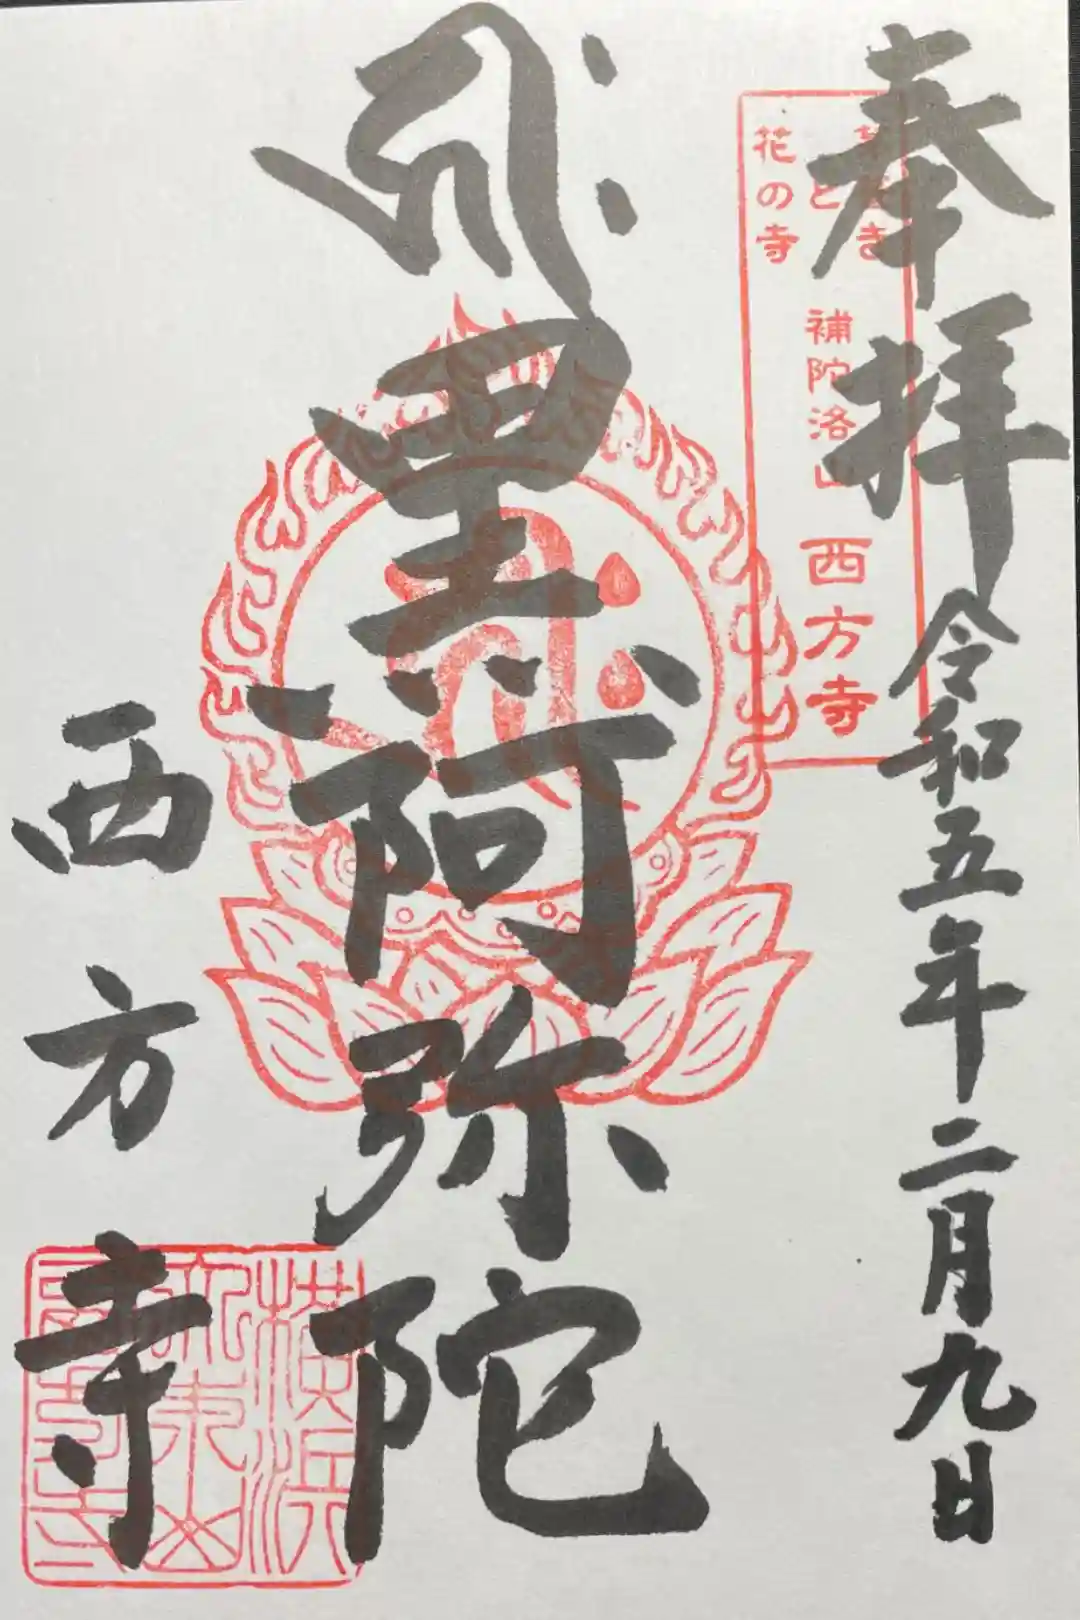 奉拝
令和五年二月九日
と
花の寺
補陀洛山 西方寺
黒阿弥陀
西方寺